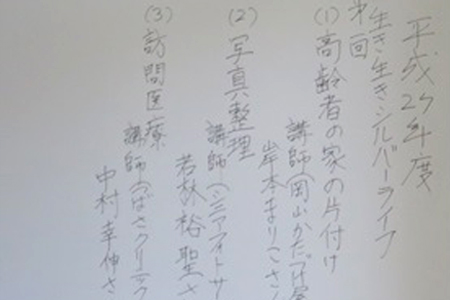 平成27年度
生き生きシルバーライフ
第1回
(1) 高齢者の家の片付け
講師(岡山かたづけ屋
岸本まりこさん
(2) 写真整理
講師(シニアフォトサー
若林裕聖さ
(3) 訪問医療
講師(つばさクリニック
中村幸伸さ